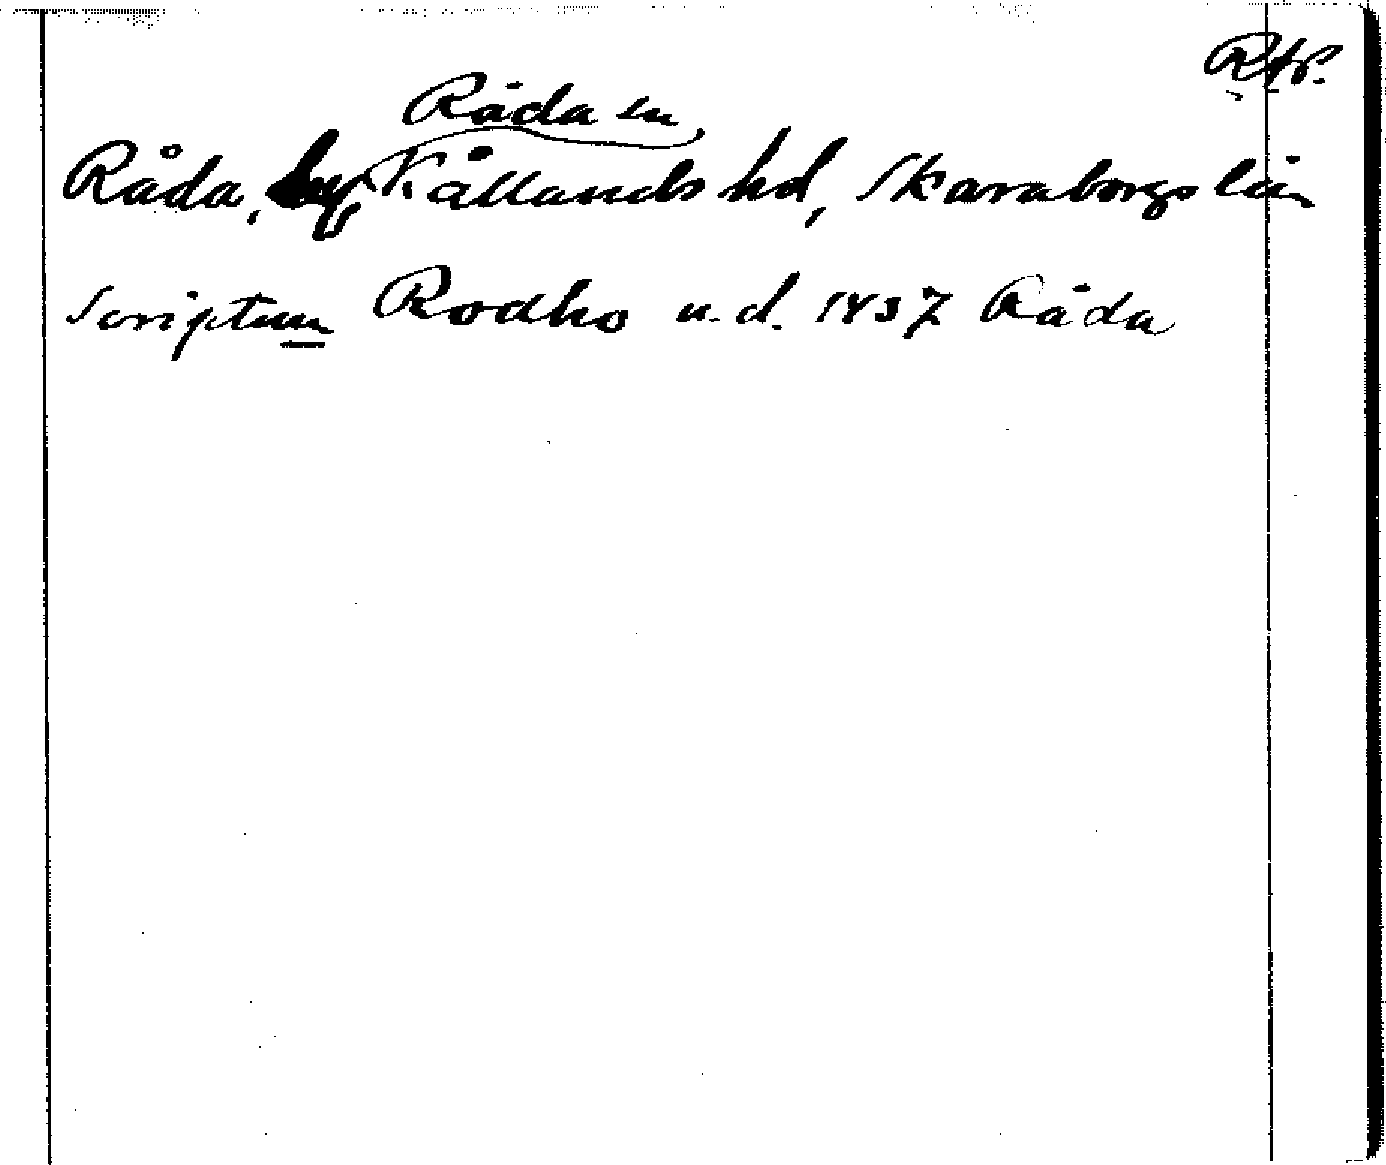 RAP.
Råda sn,
Råda, by, Kållands hd, Skaraborgs län
Scriptum Rodho u.d. 1437 Råda